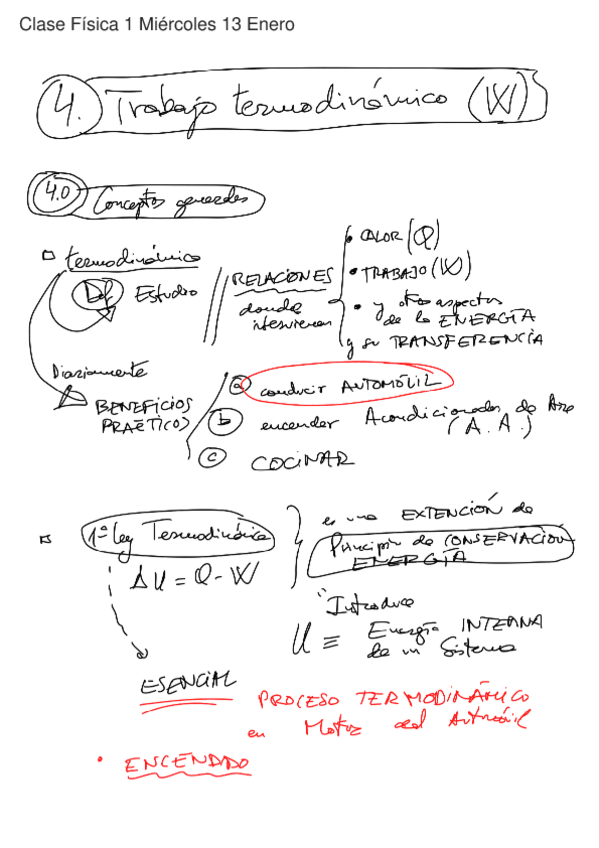 Clase Física 1 Miércoles 13 Enero
4. Trabajo termodinámico (W)
4.0 Conceptos generales
termodinámica
Def Estudio
RELACIONES
donde
intervienen
• CALOR (Q)
• TRABAJO (W)
• y otros aspectos
de la ENERGÍA
y su TRANSFERENCIA
Diariamente
BENEFICIOS
PRÁCTICOS
a conducir AUTOMÓVIL
b encender Acondicionador de Aire
(A.A.)
c COCINAR
1ª Ley Termodinámica
ΔU = Q - W
es una EXTENCIÓN de
Principio de CONSERVACIÓN
ENERGÍA
Introduce
U ≡ Energía INTERNA
de un Sistema
ESENCIAL
PROCESO TERMODINÁMICO
en Motor del Automóvil
• ENCENDIDO